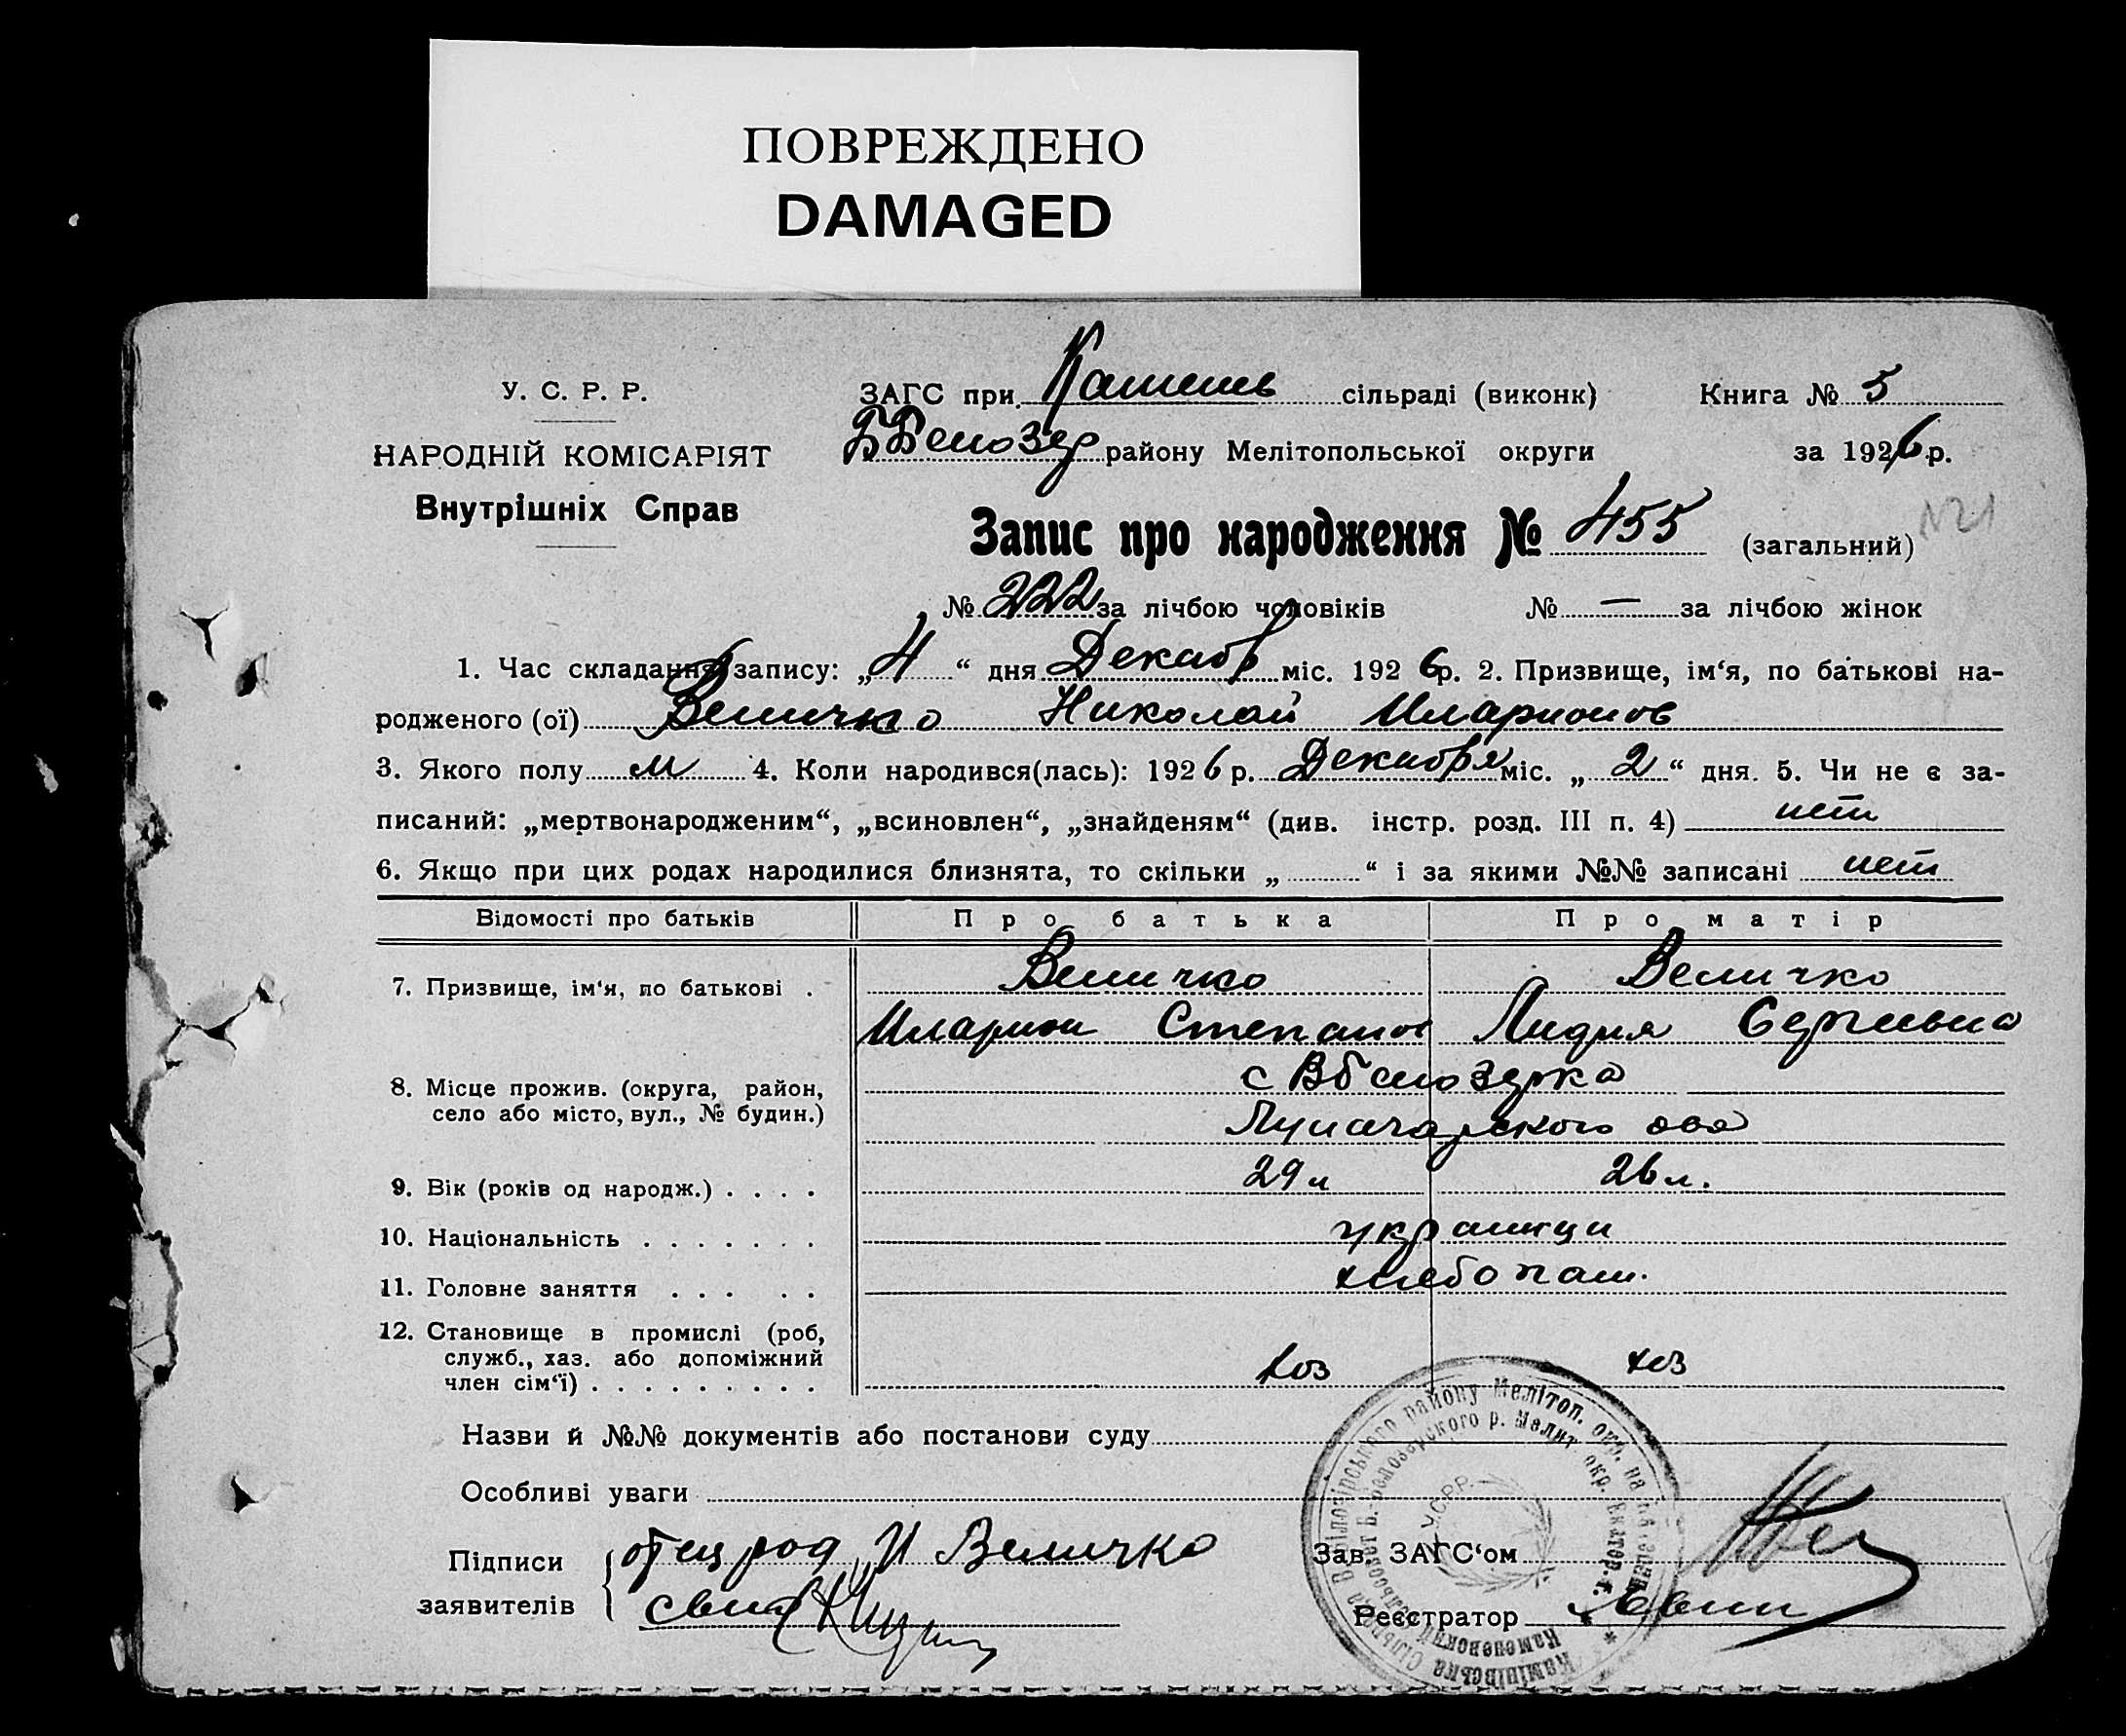 ПОВРЕЖДЕНО
DAMAGED
У. С. Р. Р.
НАРОДНІЙ КОМІСАРІЯТ
Внутрішніх Справ
ЗАГС при Каменев сільраді (виконк) Книга № 5
ББелозер району Мелітопольської округи за 1926 р.
Запис про народження № 455 (загальний)
№ 222 за лічбою чоловіків № — за лічбою жінок
1. Час складання запису: „4“ дня Декабр міс. 1926 р. 2. Призвище, ім‘я, по батькові на-
родженого (ої) Величко Николай Иларионов
3. Якого полу м 4. Коли народився(лась): 1926 р. Декабря міс. „2“ дня. 5. Чи не є за-
писаний: „мертвонародженим“, „всиновлен“, „знайденям“ (див. інстр. розд. III п. 4) нет
6. Якщо при цих родах народилися близнята, то скільки „ “ і за якими №№ записані нет
Відомості про батьків Про батька Про матір
7. Призвище, ім‘я, по батькові . Величко Величко
Иларион Степанов Лидия Сергеевна
8. Місце прожив. (округа, район, с Вбелозерка
село або місто, вул., № будин.) Луначарского
9. Вік (років од народж.) . . . . 29 л 26 л.
10. Національність . . . . . . . украинци
11. Головне заняття . . . . . хлебопаш.
12. Становище в промислі (роб,
служб., хаз. або допоміжний
член сім‘ї) . . . . . . . . . хоз хоз
Назви й №№ документів або постанови суду
Особливі уваги
Підписи отец род И Величко Зав. ЗАГС‘ом
заявителів Реєстратор
У.С.Р.Р.